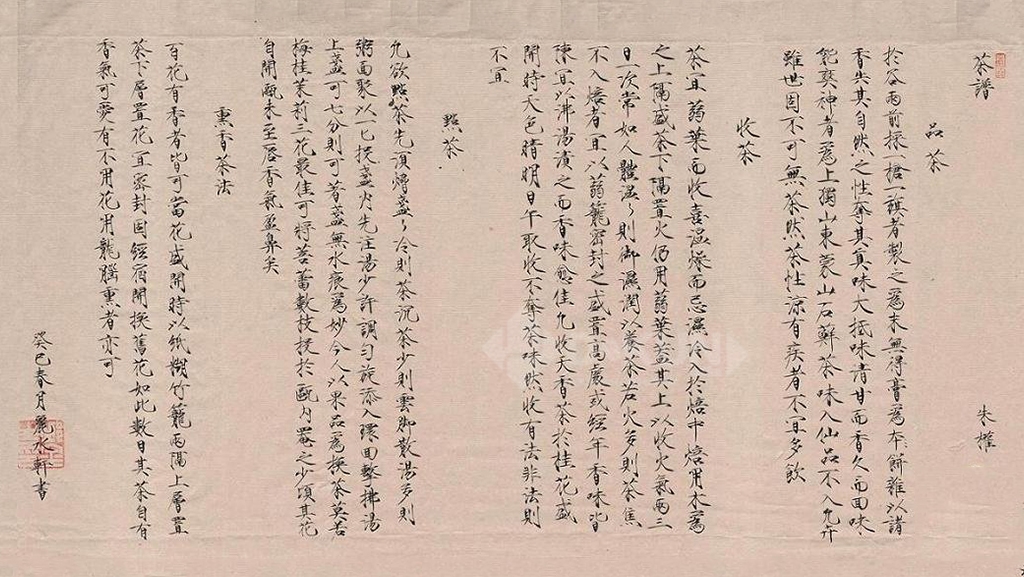 茶譜
朱權
品茶
於谷雨前採一槍一旗者製之為末無得膏為本餅雜以諸
香失其自然之性奪其真味大抵味清甘而香久而回味
能爽神者為上獨山東蒙山石蘚茶味入仙品不入凡卉
雖世固不可無茶然茶性涼有疾者不宜多飲
收茶
茶宜蒻葉而收喜溫燥而忌濕冷入於焙中焙用木為
之上隔盛茶下隔置火仍用蒻葉蓋其上以收火氣兩三
日一次常如人體溫々則御濕潤以養茶若火多則茶焦
不入焙者宜以蒻籠密封之盛置高處或經年香味皆
陳宜以沸湯漬之而香味愈佳凡收天香茶於桂花盛
開時天色晴明日午取收不奪茶味然收有法非法則
不宜
點茶
凡欲點茶先須熁盞々冷則茶沉茶少則雲腳散湯多則
粥面聚以一匕投盞內先注湯少許調勻旋添入環回擊拂湯
上盞可七分則可著盞無水痕為妙今人以果品為換茶莫若
梅桂茉莉三花最佳可將蓓蕾數枝投於甌內罨之少頃其花
自開甌未至唇香氣盈鼻矣
熏香茶法
百花有香者皆可當花盛開時以紙糊竹籠兩隔上層置
茶下層置花宜密封固經宿開換舊花如此數日其茶自有
香氣可愛有不用花用龍腦熏者亦可
癸巳春月 水軒書